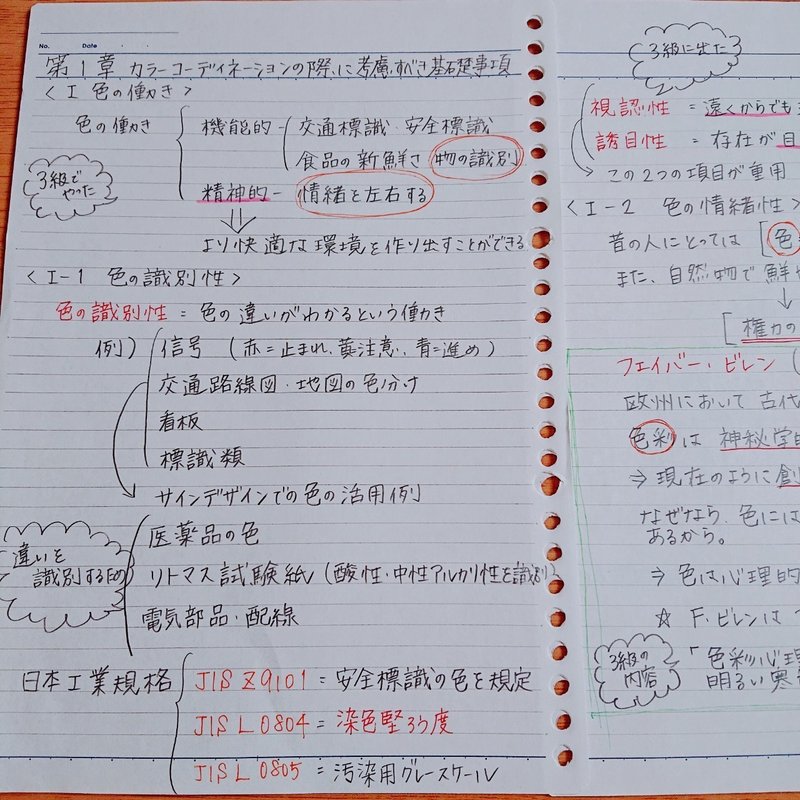 No.
Date
第1章 カラーコーディネーションの際に考慮すべき基礎事項
<Ⅰ 色の働き>
色の働き
機能的 - 交通標識・安全標識
食品の新鮮さ 物の識別
3級でやった
精神的 - 情緒を左右する
⇓
より快適な環境を作り出すことができる
<Ⅰ-1 色の識別性>
色の識別性 = 色の違いがわかるという働き
例) 信号 (赤=止まれ、黄注意、青=進め)
交通路線図・地図の色分け
看板
標識類
サインデザインでの色の活用例
違いを識別するため
医薬品の色
リトマス試験紙 (酸性・中性アルカリ性を識別)
電気部品・配線
日本工業規格
JIS Z9101 = 安全標識の色を規定
JIS L 0804 = 染色堅ろう度
JIS L 0805 = 汚染用グレースケール
3級に出た
視認性 = 遠くからでも
誘目性 = 存在が目
この2つの項目が重用
<Ⅰ-2 色の情緒性>
昔の人にとっては [色
また、自然物で鮮
↓
[権力の
フェイバー・ビレン (
欧州において 古代
色彩は 神秘学的
⇒ 現在のように 創
なぜなら、色には
あるから。
⇒ 色は心理的
☆ F.ビレンは
3級の内容
「色彩心理
明るい寒